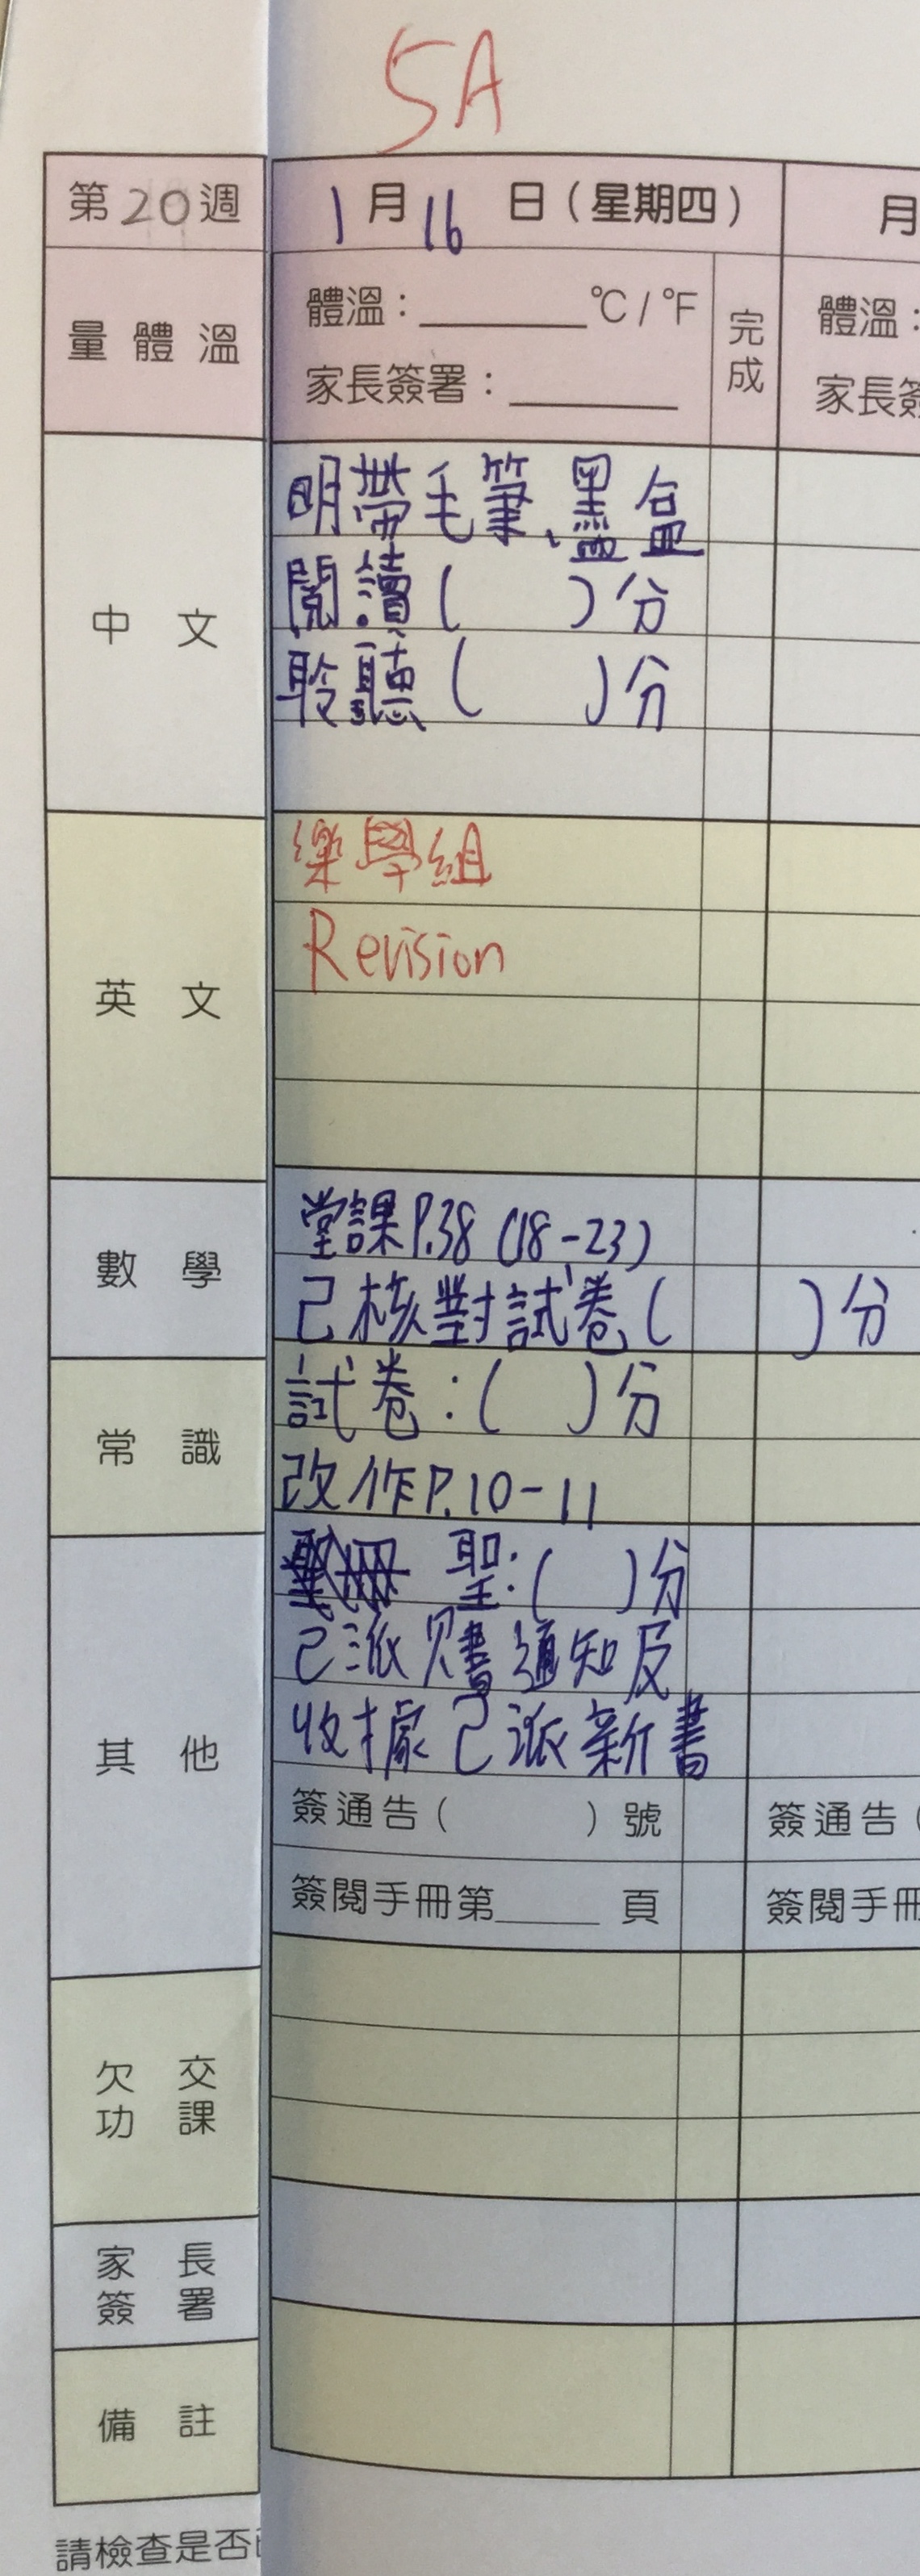 5A
第20週 1月16日（星期四） 月
量體溫 體溫：______°C/°F 完成 體溫：
家長簽署：______ 家長簽
中文 明帶毛筆、墨盒
閱讀( )分
聆聽( )分
英文 樂學組
Revision
數學 堂課P.38 (18-23)
己核對試卷( )分
常識 試卷：( )分
改作P.10-11
其他 聖:( )分
己派 書通知及
收據己派新書
簽通告( )號 簽通告(
簽閱手冊第______頁 簽閱手冊
欠交功課
家長簽署
備註
請檢查是否